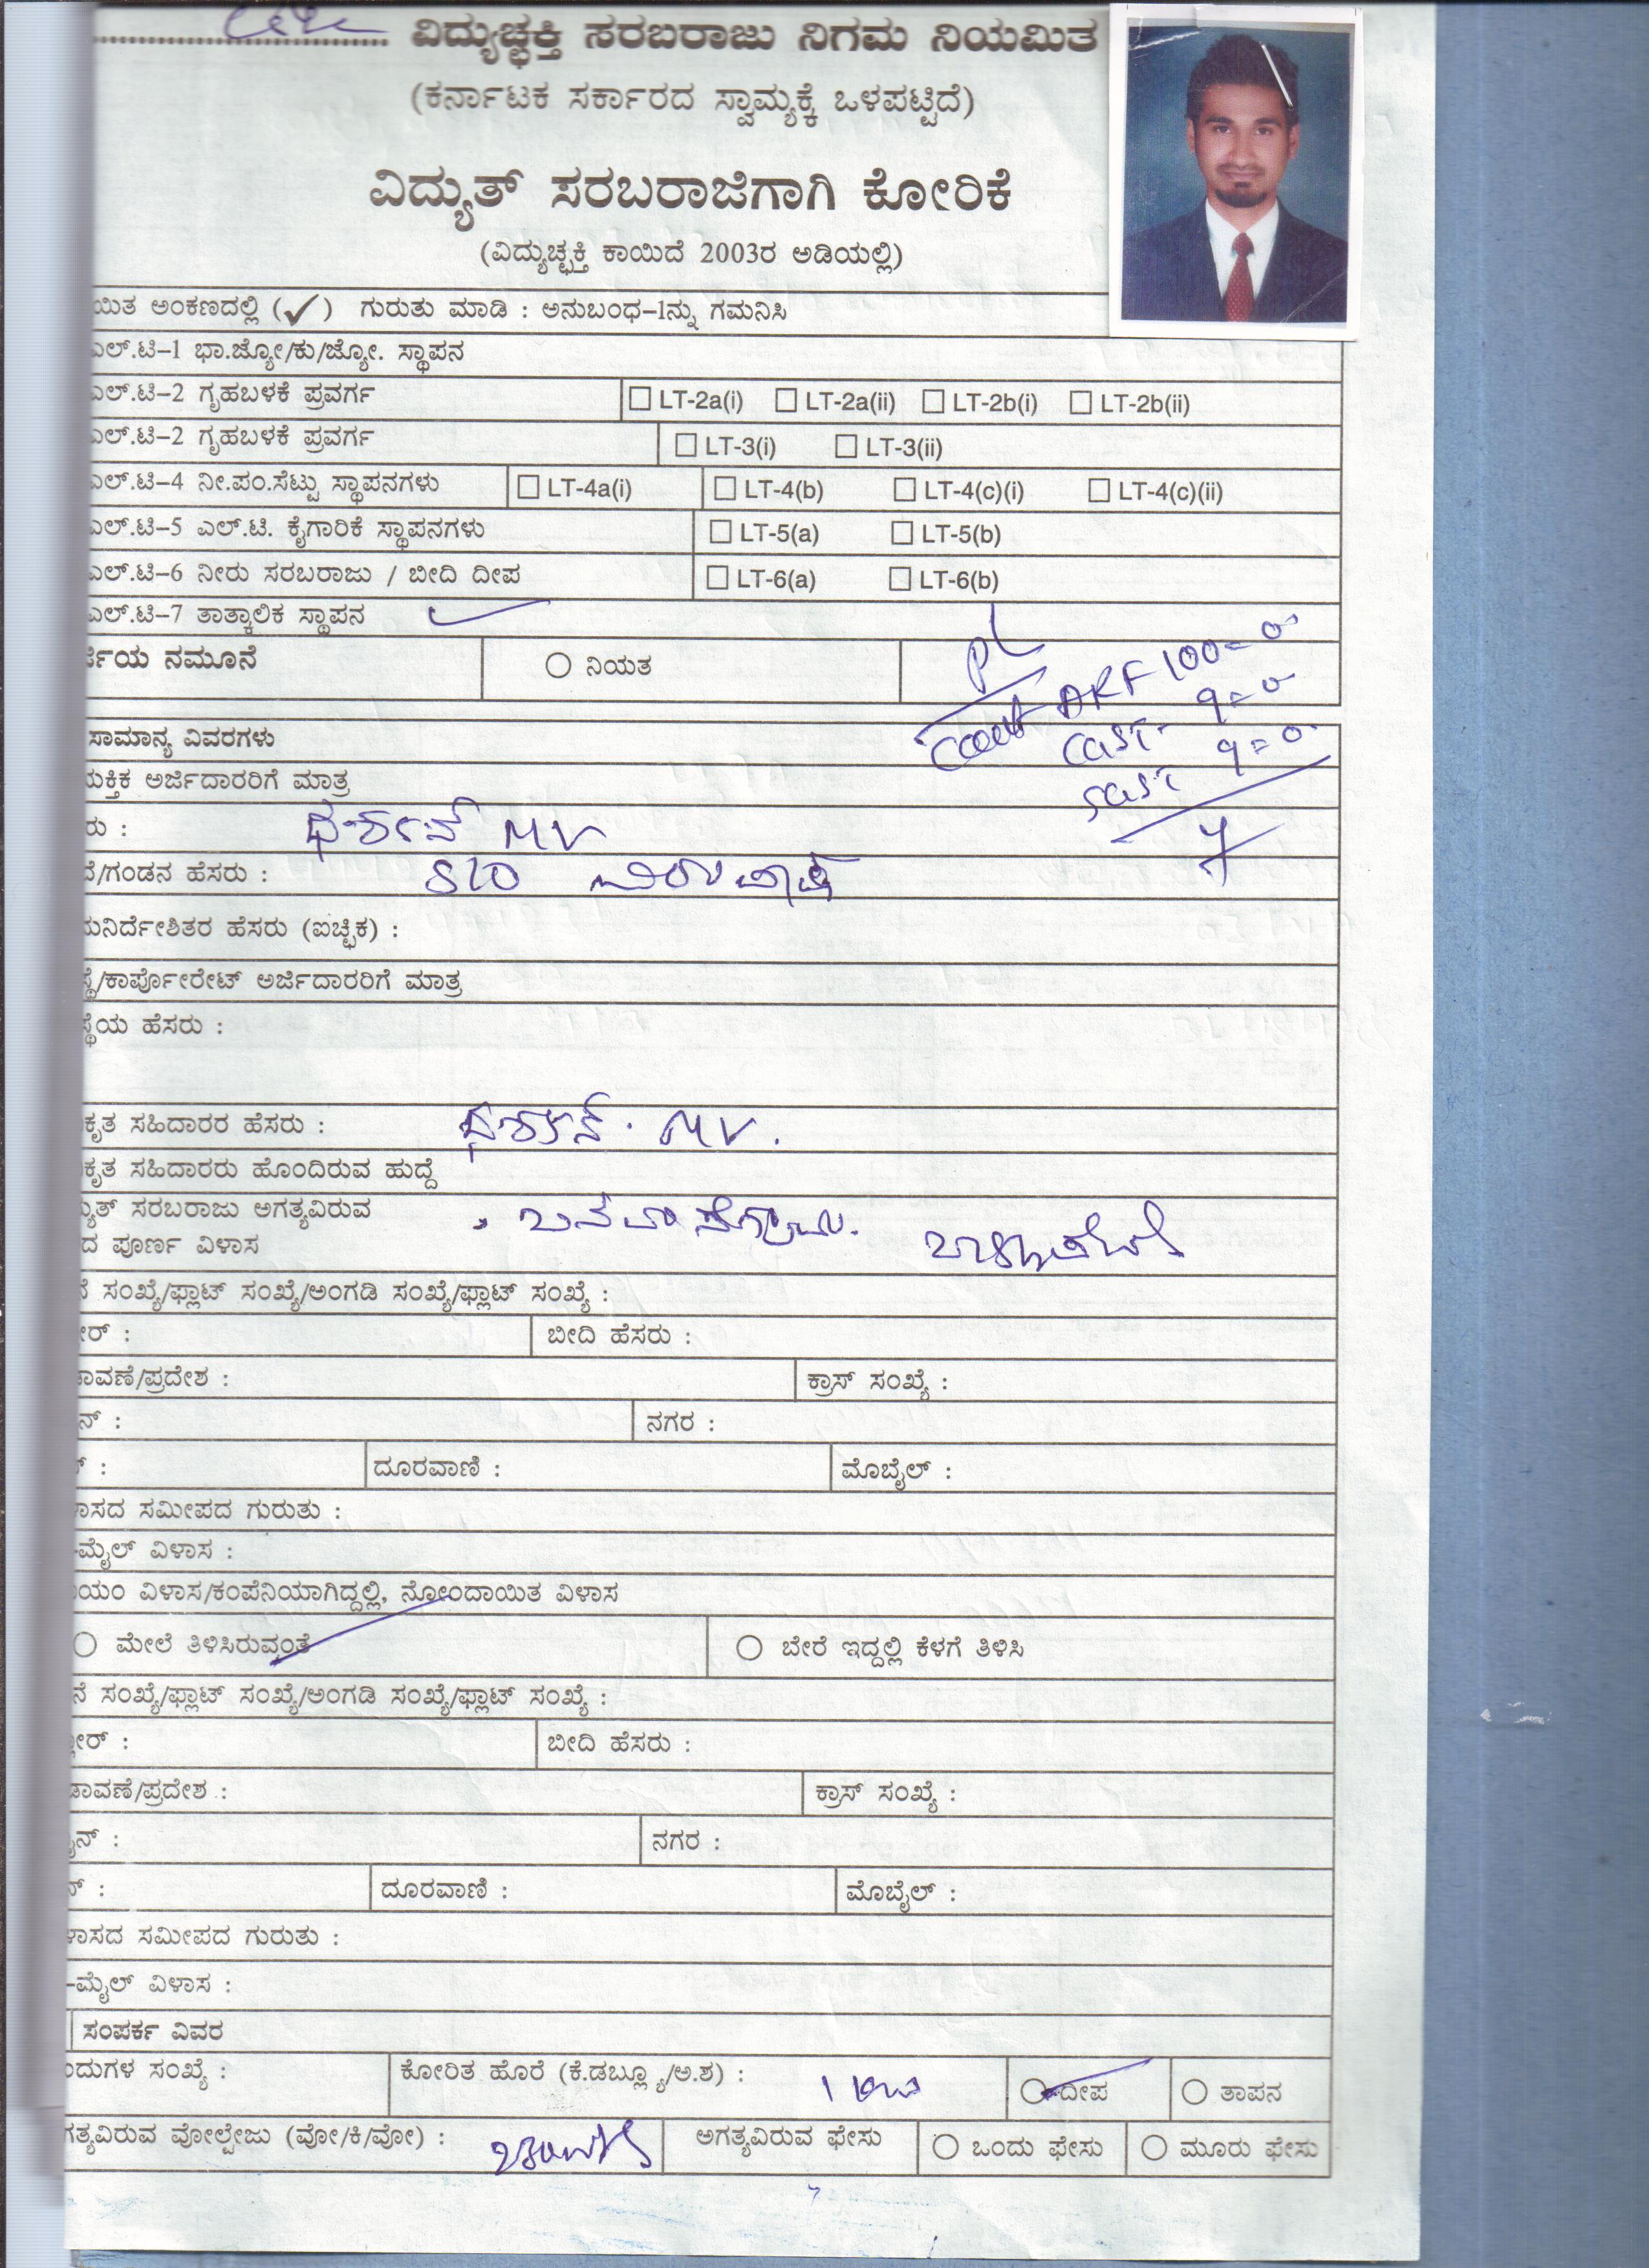 ವಿದ್ಯುಚ್ಛಕ್ತಿ ಸರಬರಾಜು ನಿಗಮ ನಿಯಮಿತ
(ಕರ್ನಾಟಕ ಸರ್ಕಾರದ ಸ್ವಾಮ್ಯಕ್ಕೆ ಒಳಪಟ್ಟಿದೆ)
ವಿದ್ಯುತ್ ಸರಬರಾಜಿಗಾಗಿ ಕೋರಿಕೆ
(ವಿದ್ಯುಚ್ಛಕ್ತಿ ಕಾಯಿದೆ 2003ರ ಅಡಿಯಲ್ಲಿ)
ಯಿತ ಅಂಕಣದಲ್ಲಿ (✓) ಗುರುತು ಮಾಡಿ : ಅನುಬಂಧ-1ನ್ನು ಗಮನಿಸಿ
ಎಲ್.ಟಿ-1 ಭಾ.ಜ್ಯೋ/ಕು/ಜ್ಯೋ. ಸ್ಥಾಪನ
ಎಲ್.ಟಿ-2 ಗೃಹಬಳಕೆ ಪ್ರವರ್ಗ LT-2a(i) LT-2a(ii) LT-2b(i) LT-2b(ii)
ಎಲ್.ಟಿ-2 ಗೃಹಬಳಕೆ ಪ್ರವರ್ಗ LT-3(i) LT-3(ii)
ಎಲ್.ಟಿ-4 ನೀ.ಪಂ.ಸೆಟ್ಟು ಸ್ಥಾಪನಗಳು LT-4a(i) LT-4(b) LT-4(c)(i) LT-4(c)(ii)
ಎಲ್.ಟಿ-5 ಎಲ್.ಟಿ. ಕೈಗಾರಿಕೆ ಸ್ಥಾಪನಗಳು LT-5(a) LT-5(b)
ಎಲ್.ಟಿ-6 ನೀರು ಸರಬರಾಜು / ಬೀದಿ ದೀಪ LT-6(a) LT-6(b)
ಎಲ್.ಟಿ-7 ತಾತ್ಕಾಲಿಕ ಸ್ಥಾಪನ ✓
ರ್ಜಿಯ ನಮೂನೆ ನಿಯತ
ARF 100=0
9=0
9=0
ಸಾಮಾನ್ಯ ವಿವರಗಳು
ಯಕ್ತಿಕ ಅರ್ಜಿದಾರರಿಗೆ ಮಾತ್ರ
ರು : ಧರ್ಶನ್ MV
ದೆ/ಗಂಡನ ಹೆಸರು : S/O ವಿರುಪಾಕ್ಷ
ಮನಿರ್ದೇಶಿತರ ಹೆಸರು (ಐಚ್ಛಿಕ) :
ಸ್ಥೆ/ಕಾರ್ಪೋರೇಟ್ ಅರ್ಜಿದಾರರಿಗೆ ಮಾತ್ರ
ಸ್ಥೆಯ ಹೆಸರು :
ಕೃತ ಸಹಿದಾರರ ಹೆಸರು : ಧರ್ಶನ್. MV.
ಕೃತ ಸಹಿದಾರರು ಹೊಂದಿರುವ ಹುದ್ದೆ
ಯುತ್ ಸರಬರಾಜು ಅಗತ್ಯವಿರುವ
ದ ಪೂರ್ಣ ವಿಳಾಸ
ನೆ ಸಂಖ್ಯೆ/ಫ್ಲಾಟ್ ಸಂಖ್ಯೆ/ಅಂಗಡಿ ಸಂಖ್ಯೆ/ಫ್ಲಾಟ್ ಸಂಖ್ಯೆ :
ೀರ್ : ಬೀದಿ ಹೆಸರು :
ಾವಣೆ/ಪ್ರದೇಶ : ಕ್ರಾಸ್ ಸಂಖ್ಯೆ :
ನ್ : ನಗರ :
್ : ದೂರವಾಣಿ : ಮೊಬೈಲ್ :
ಾಸದ ಸಮೀಪದ ಗುರುತು :
-ಮೈಲ್ ವಿಳಾಸ :
ಯಂ ವಿಳಾಸ/ಕಂಪೆನಿಯಾಗಿದ್ದಲ್ಲಿ, ನೋಂದಾಯಿತ ವಿಳಾಸ
ಮೇಲೆ ತಿಳಿಸಿರುವಂತೆ ಬೇರೆ ಇದ್ದಲ್ಲಿ ಕೆಳಗೆ ತಿಳಿಸಿ
ನೆ ಸಂಖ್ಯೆ/ಫ್ಲಾಟ್ ಸಂಖ್ಯೆ/ಅಂಗಡಿ ಸಂಖ್ಯೆ/ಫ್ಲಾಟ್ ಸಂಖ್ಯೆ :
ಲೀರ್ : ಬೀದಿ ಹೆಸರು :
ಡಾವಣೆ/ಪ್ರದೇಶ : ಕ್ರಾಸ್ ಸಂಖ್ಯೆ :
ೈನ್ : ನಗರ :
ನ್ : ದೂರವಾಣಿ : ಮೊಬೈಲ್ :
ಳಾಸದ ಸಮೀಪದ ಗುರುತು :
-ಮೈಲ್ ವಿಳಾಸ :
ಸಂಪರ್ಕ ವಿವರ
ಂದುಗಳ ಸಂಖ್ಯೆ : ಕೋರಿತ ಹೊರೆ (ಕೆ.ಡಬ್ಲ್ಯೂ/ಅ.ಶ) : 1 kw ದೀಪ ತಾಪನ
ಗತ್ಯವಿರುವ ವೋಲ್ಟೇಜು (ವೋ/ಕಿ/ವೋ) : ಅಗತ್ಯವಿರುವ ಫೇಸು ಒಂದು ಫೇಸು ಮೂರು ಫೇಸು